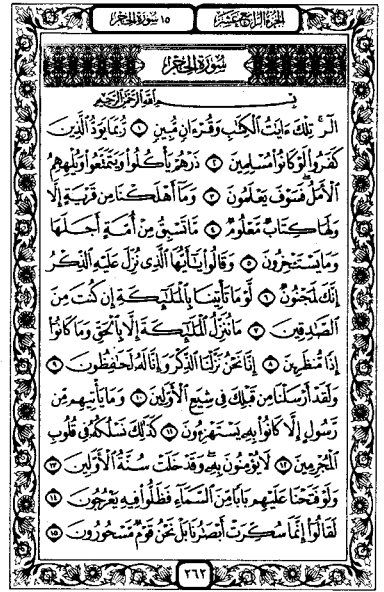 الجزء الرابع عشر
١٥ سورة الحجر
سُورَةُ الحِجْرِ
بِسْمِ اللَّهِ الرَّحْمَٰنِ الرَّحِيمِ
الٓرۚ تِلْكَ ءَايَٰتُ ٱلْكِتَٰبِ وَقُرْءَانٍ مُّبِينٍ ١ رُّبَمَا يَوَدُّ ٱلَّذِينَ
كَفَرُوا۟ لَوْ كَانُوا۟ مُسْلِمِينَ ٢ ذَرْهُمْ يَأْكُلُوا۟ وَيَتَمَتَّعُوا۟ وَيُلْهِهِمُ
ٱلْأَمَلُۖ فَسَوْفَ يَعْلَمُونَ ٣ وَمَآ أَهْلَكْنَا مِن قَرْيَةٍ إِلَّا
وَلَهَا كِتَابٌ مَّعْلُومٌ ٤ مَّا تَسْبِقُ مِنْ أُمَّةٍ أَجَلَهَا
وَمَا يَسْتَـْٔخِرُونَ ٥ وَقَالُوا۟ يَٰٓأَيُّهَا ٱلَّذِى نُزِّلَ عَلَيْهِ ٱلذِّكْرُ
إِنَّكَ لَمَجْنُونٌ ٦ لَّوْ مَا تَأْتِينَا بِٱلْمَلَٰٓئِكَةِ إِن كُنتَ مِنَ
ٱلصَّٰدِقِينَ ٧ مَا نُنَزِّلُ ٱلْمَلَٰٓئِكَةَ إِلَّا بِٱلْحَقِّ وَمَا كَانُوٓا۟
إِذًا مُّنظَرِينَ ٨ إِنَّا نَحْنُ نَزَّلْنَا ٱلذِّكْرَ وَإِنَّا لَهُۥ لَحَٰفِظُونَ ٩
وَلَقَدْ أَرْسَلْنَا مِن قَبْلِكَ فِى شِيَعِ ٱلْأَوَّلِينَ ١٠ وَمَا يَأْتِيهِم مِّن
رَّسُولٍ إِلَّا كَانُوا۟ بِهِۦ يَسْتَهْزِءُونَ ١١ كَذَٰلِكَ نَسْلُكُهُۥ فِى قُلُوبِ
ٱلْمُجْرِمِينَ ١٢ لَا يُؤْمِنُونَ بِهِۦۖ وَقَدْ خَلَتْ سُنَّةُ ٱلْأَوَّلِينَ ١٣
وَلَوْ فَتَحْنَا عَلَيْهِم بَابًا مِّنَ ٱلسَّمَآءِ فَظَلُّوا۟ فِيهِ يَعْرُجُونَ ١٤
لَقَالُوٓا۟ إِنَّمَا سُكِّرَتْ أَبْصَٰرُنَا بَلْ نَحْنُ قَوْمٌ مَّسْحُورُونَ ١٥
٢٦٢